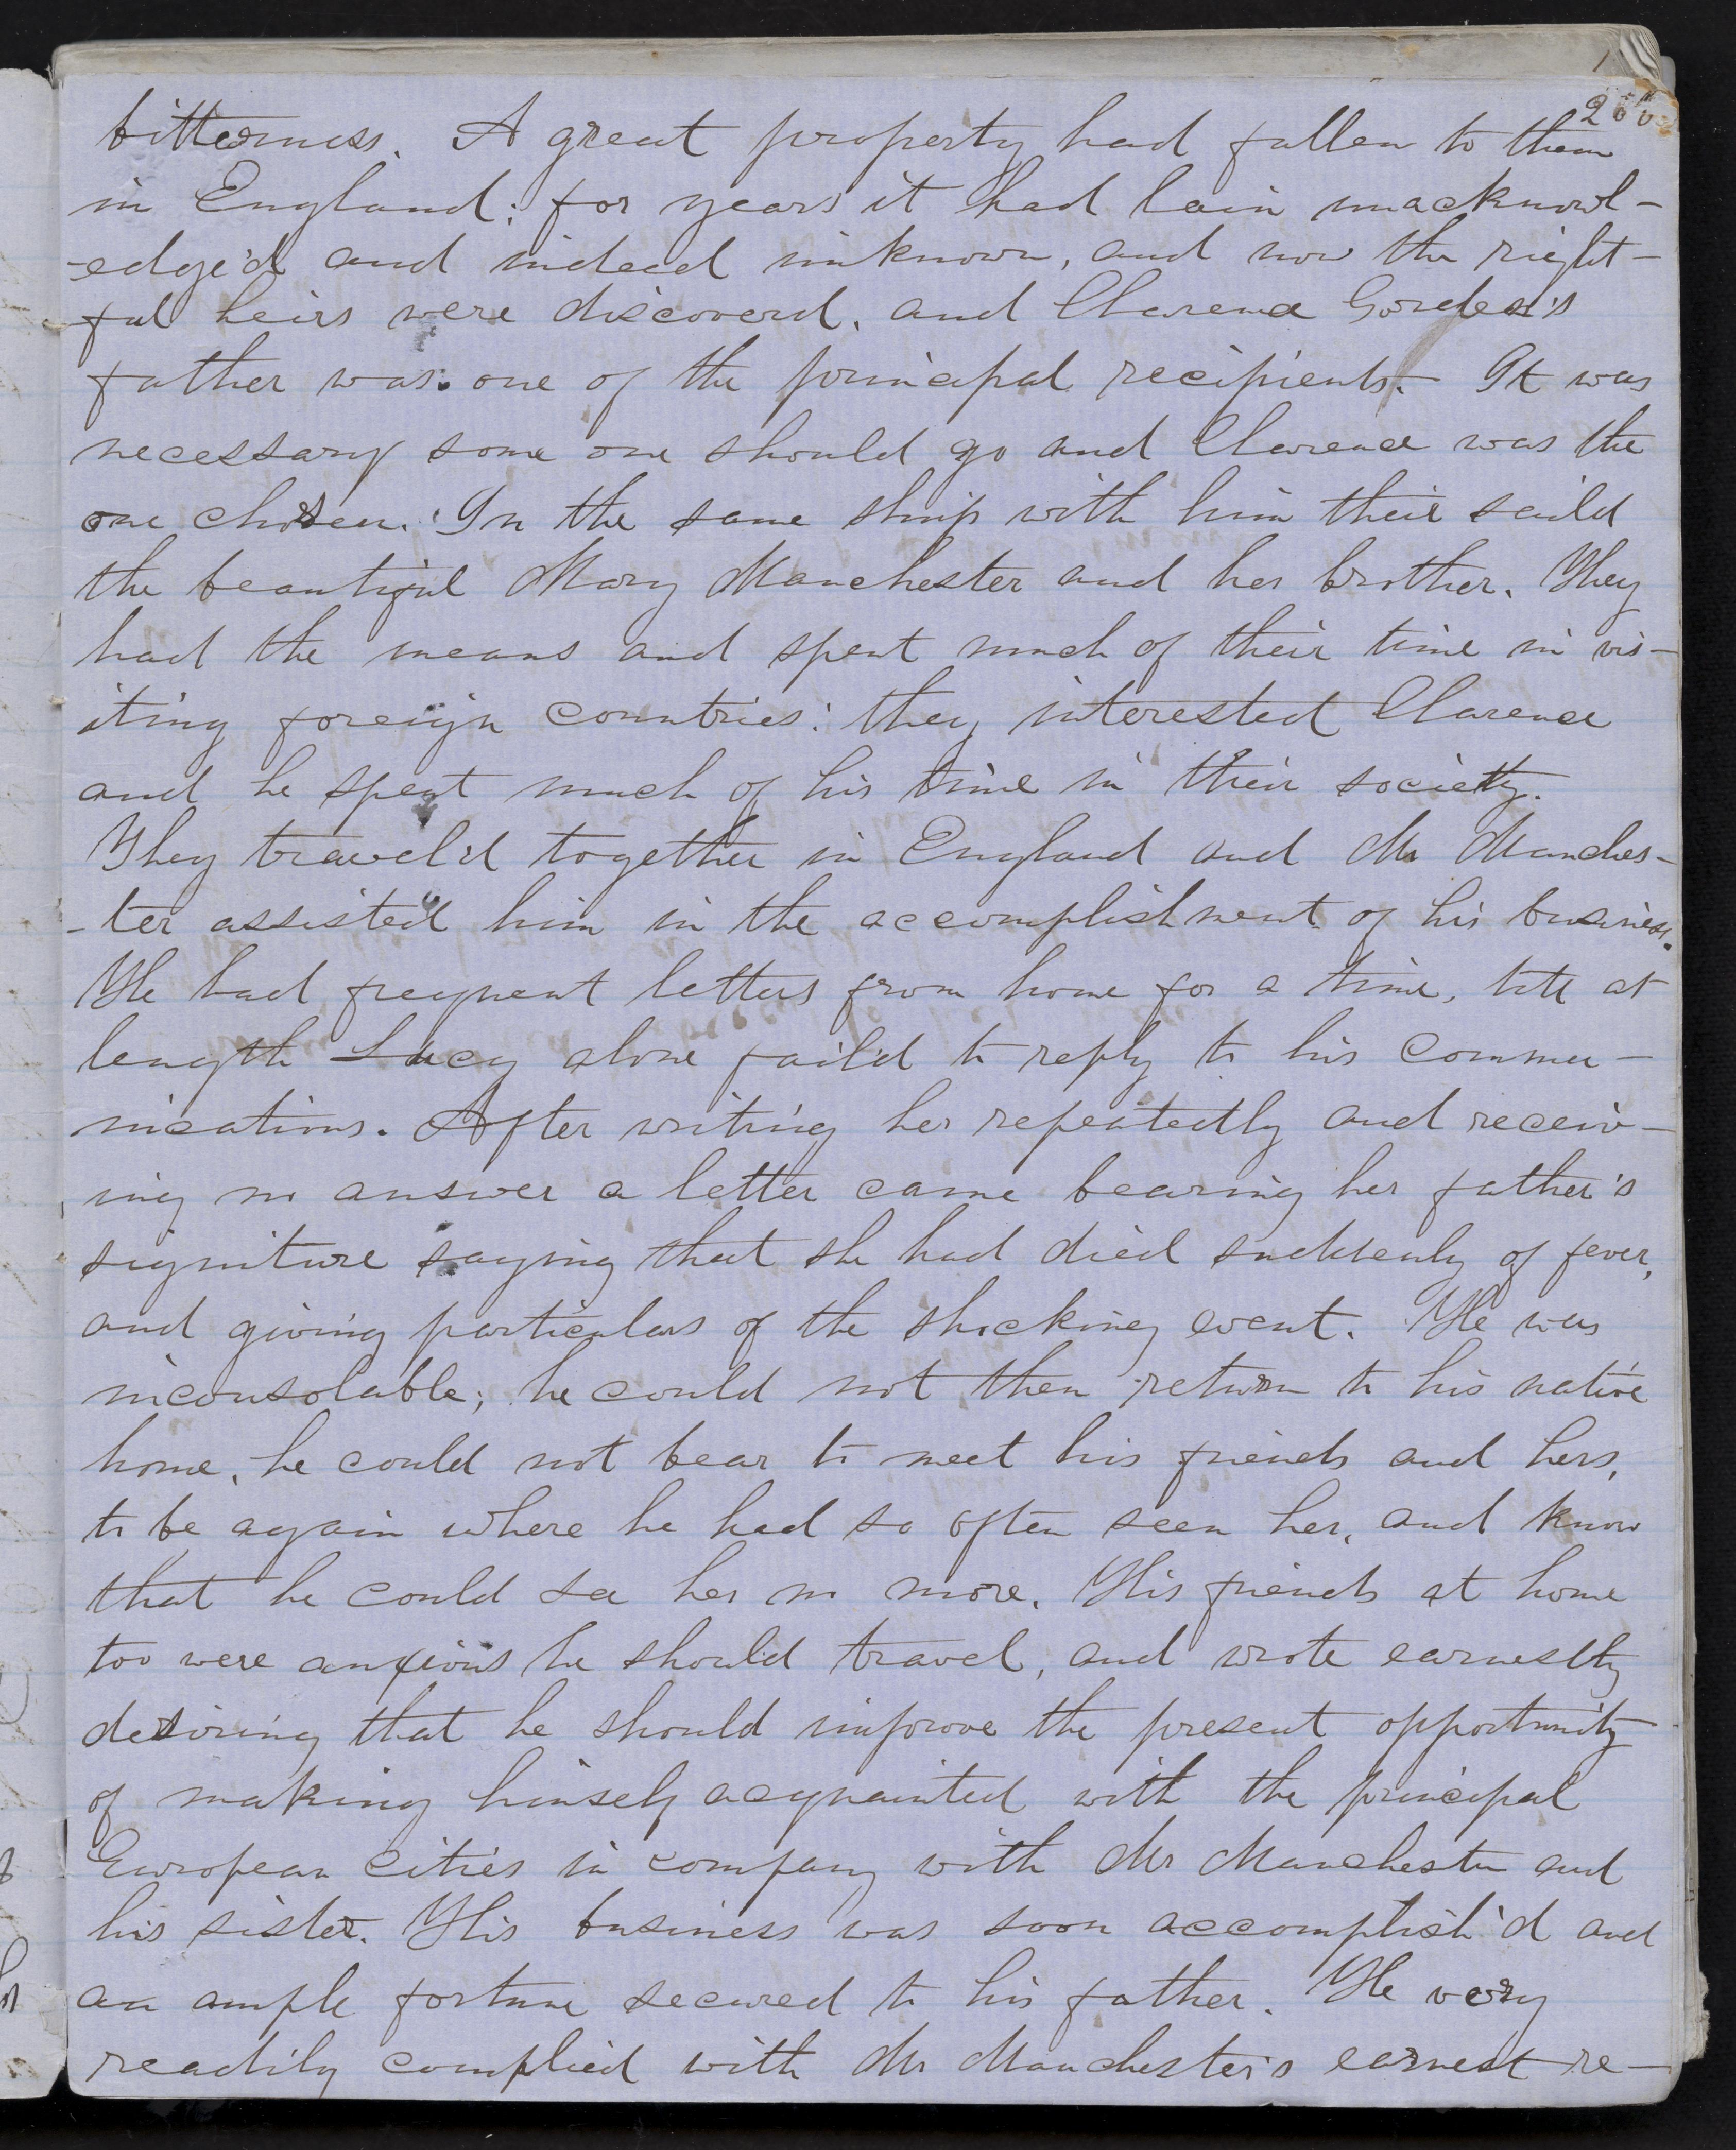 bitterness. A great property had fallen to them
in England; for years it had lain unacknowl-
-edge'd and indeed unknown, and now the right-
ful heirs were discoverd, and Clarence Gorden's
father was one of the principal recipients. It was
necessary some one should go and Clarence was the
one chosen. In the same ship with him their saild
the beautiful Mary Manchester and her brother. They
had the means and spent much of their time in vis-
iting foreign countries: they interested Clarence
and he spent much of his time in their society.
They travel'd together in England and Mr Manches-
-ter assisted him in the accomplishment of his business.
He had frequent letters from home for a time, till at
length Lucy alone faild to reply to his commu-
nications. After writing her repeatedly and receiv-
ing no answer a letter came bearing her father's
signiture saying that she had died suddenly of fever,
and giving particulars of the shocking event. He was
inconsolable; he could not then return to his native
home, he could not bear to meet his friends and hers,
to be again where he had so often seen her, and know
that he could see her no more. His friends at home
too were anxious he should travel, and wrote earnestly
desiring that he should improve the present opportunity
of making himself acquainted with the principal
European cities in company with Mr Manchester and
his sister. His business was soon accomplish'd and
an ample fortune secured to his father. He very
readily complied with Mr Manchester's earnest re-